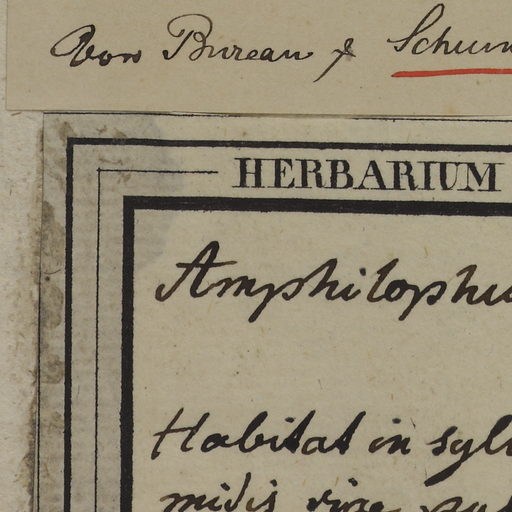 Von Bureau & Schum
HERBARIUM
Amphilophu
Habitat in sylv
midis